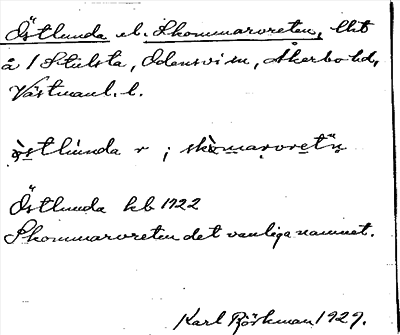 Östlunda el. Skommarvreten, lht
å 1 Stulsta, Odensvi sn, Åkerbo hd,
Västmanl. l.
östlùnda r ; skòmarvretn̥
Östlunda kb 1922
Skommarvreten det vanliga namnet.
Karl Björkman 1929.